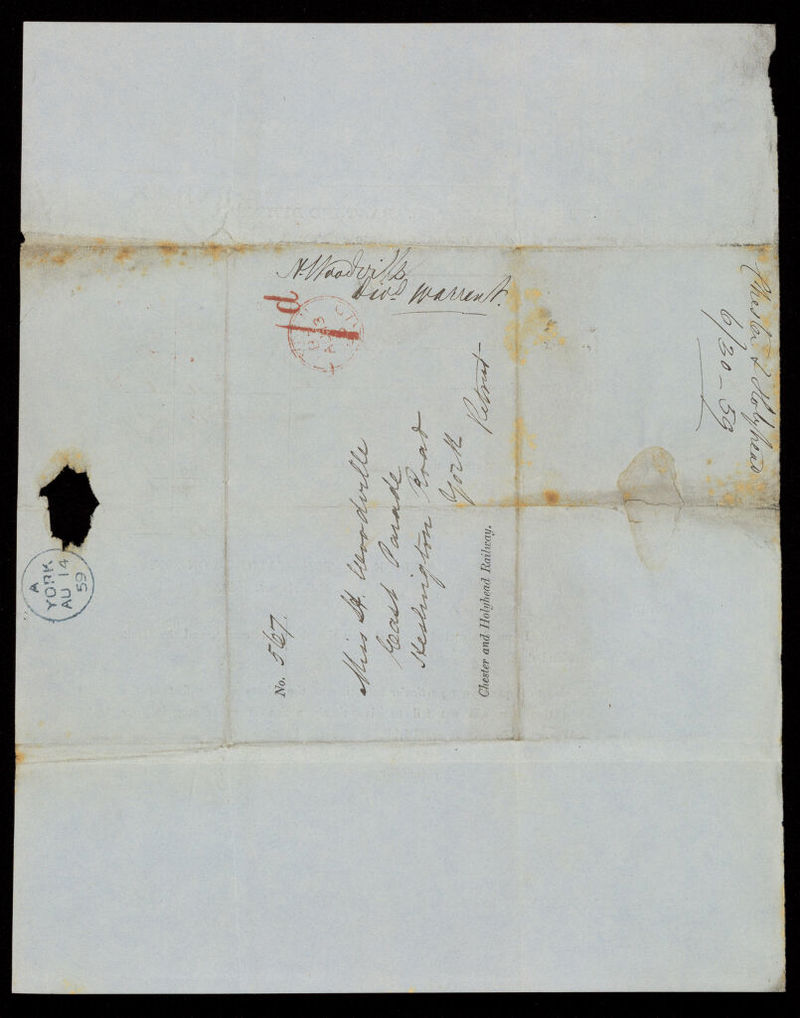 H. Woodville
Divd. Warrent.
1d
No. 567.
Miss H. Woodville
East Parade
Heslington Road
York
Retreat
Chester and Holyhead Railway.
Chester & Holyhead
6/30 - 59
A
YORK
AU 14
59